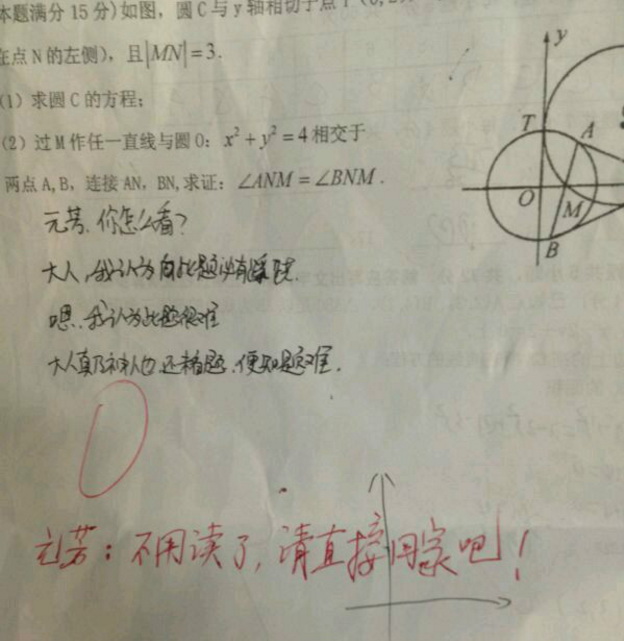 本题满分 15 分)如图，圆 C 与 y 轴相切于点 T
在点 N 的左侧)，且|MN|=3.
(1) 求圆 C 的方程;
(2) 过 M 作任一直线与圆 O: x²+y²=4 相交于
两点 A, B，连接 AN，BN, 求证：∠ANM=∠BNM.
y
T
A
O
M
B
元芳，你怎么看?
大人，我认为此题必有蹊跷.
嗯，我认为此题很难
大人真乃神人也，还未看题，便知题难.
0
元芳：不用读了，请直接回家吧！